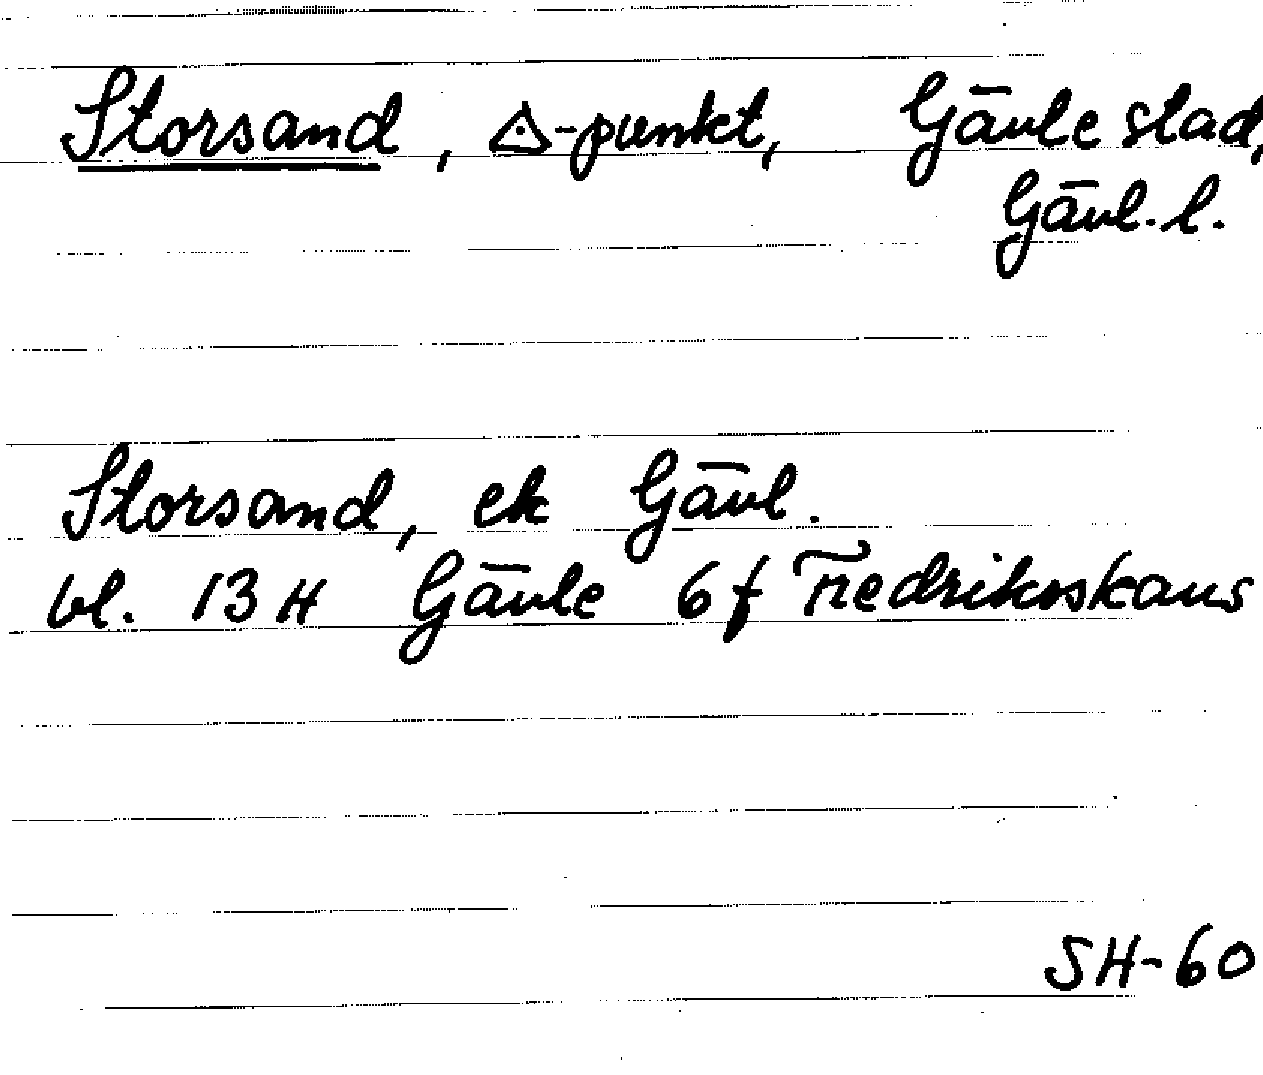 Storsand, △-punkt, Gävle stad,
Gävl. l.
Storsand, ek Gävl.
bl. 13 H Gävle 6f Fredriksskans
SH-60